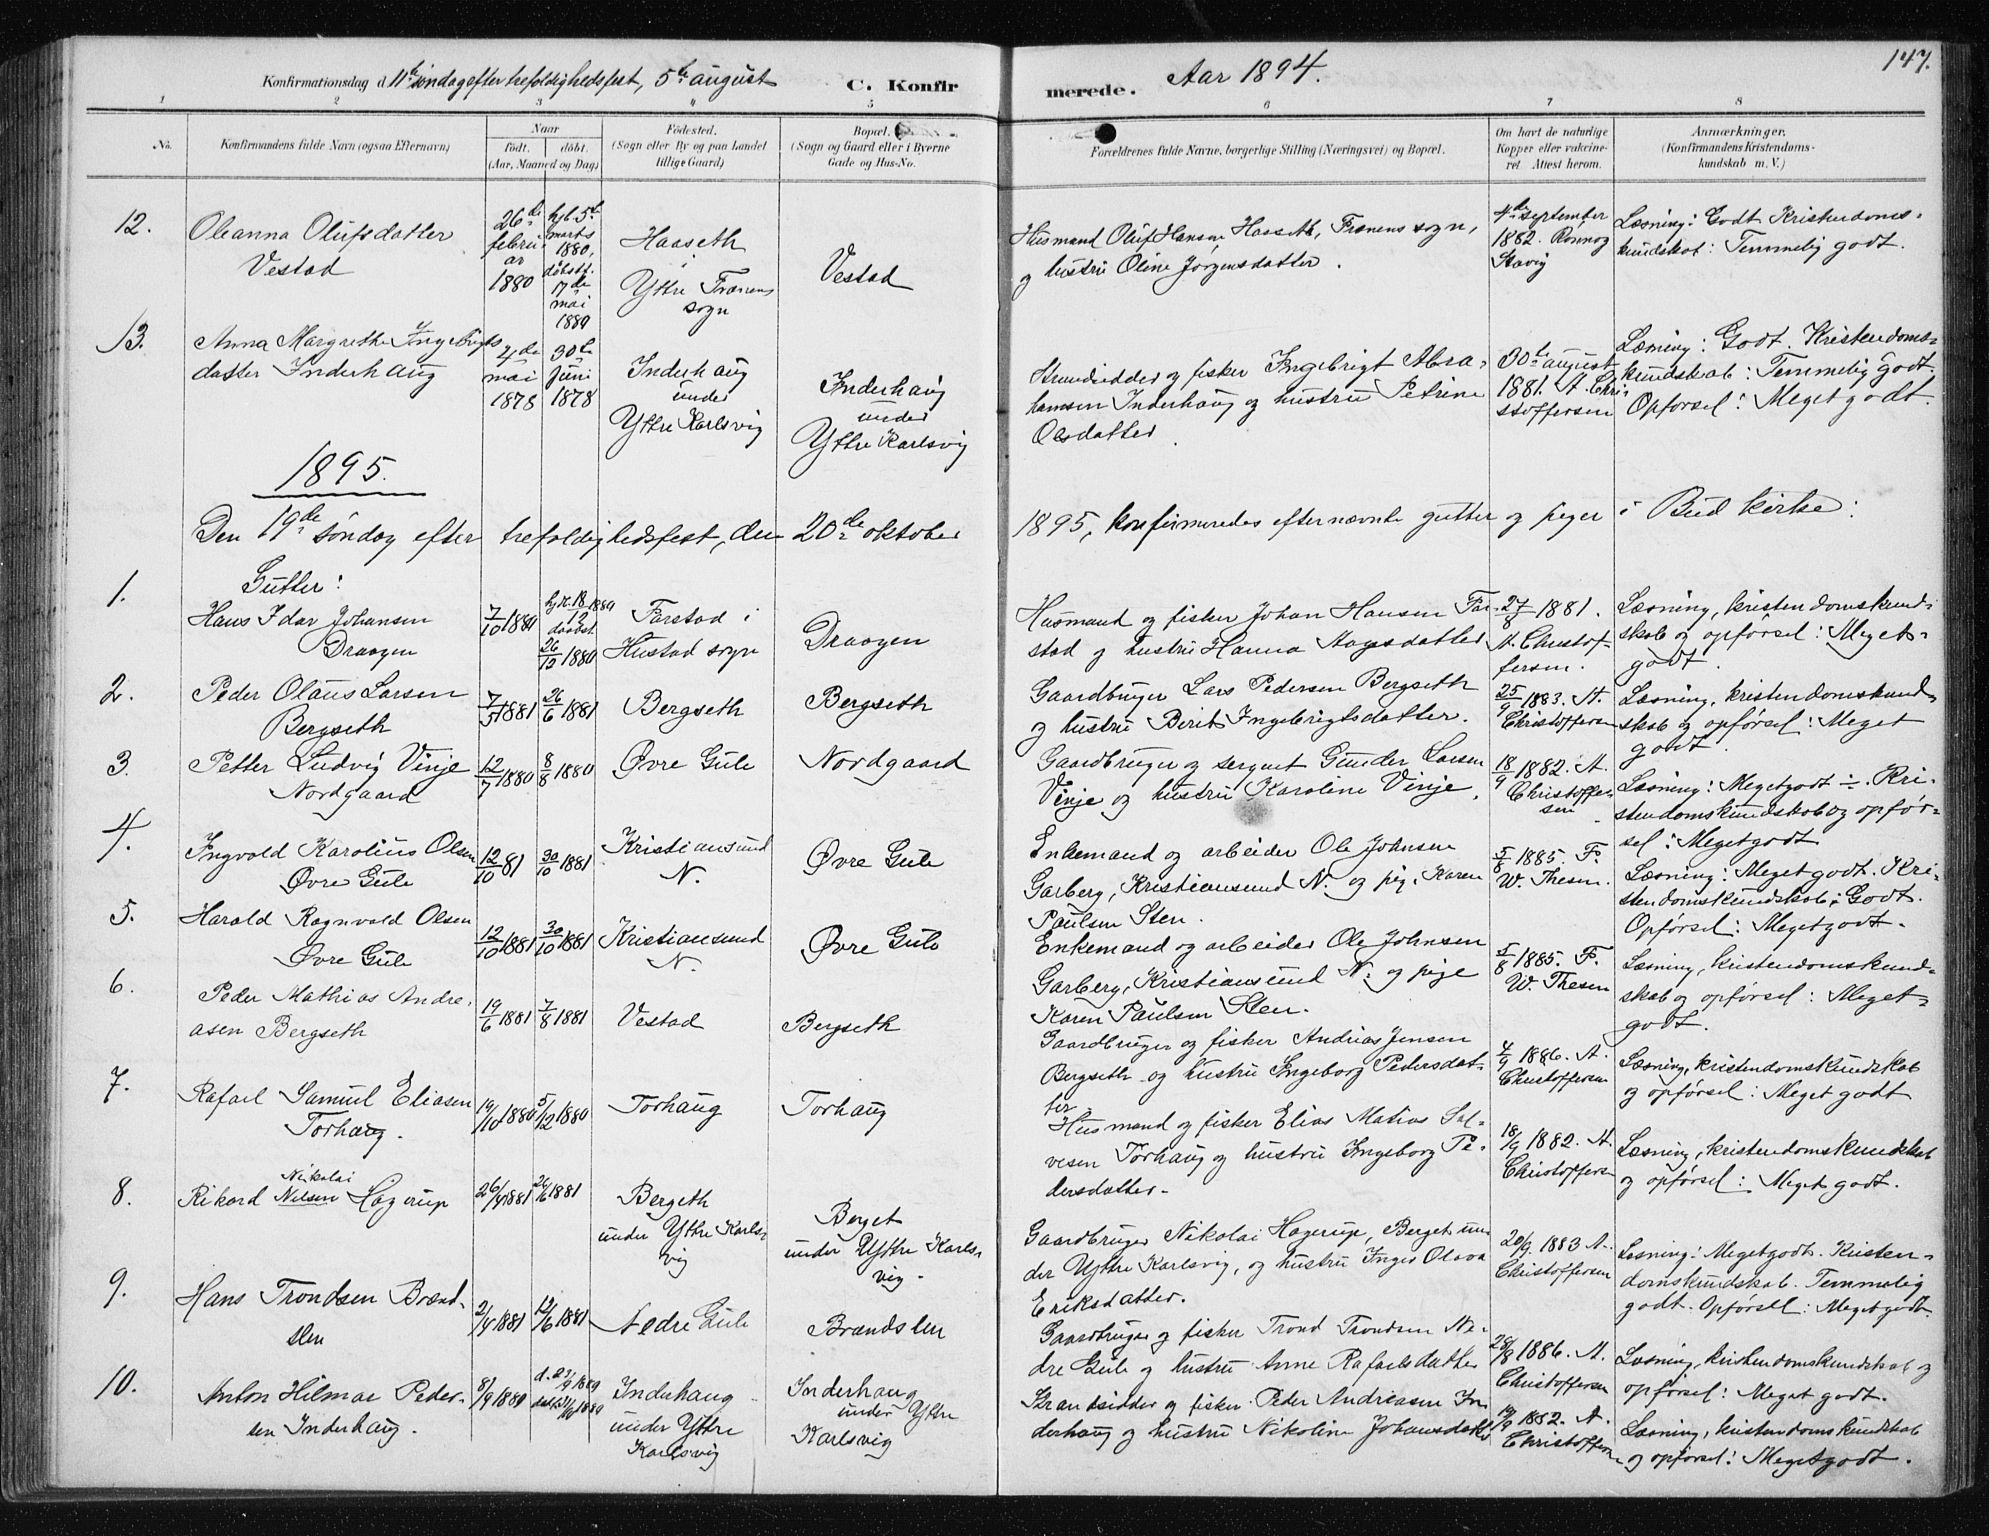 147.
Konfirmationsdag d. 11te søndag efter trefoldighedsfest, 5te august C. Konfirmerede. Aar 1894.
1 2 3 4 5 6 7 8
No. Konfirmandens fulde Navn (ogsaa Efternavn)
Naar født. døbt. (Aar, Maaned og Dag)
Födested. (Sogn eller By og paa Landet tillige Gaard)
Bopæl. (Sogn og Gaard eller i Byerne Gade og Hus-No.
Forældrenes fulde Navne, borgerlige Stilling (Næringsvei) og Bopæl.
Om havt de naturlige Kopper eller vakcineret. Attest herom.
Anmærkninger. (Konfirmandens Kristendomskundskab m. V.)
12. Oleanna Olufsdatter
Vestad
26de februar 1880
hjd. 5te marts 1880, døbst. 17de mai 1880
Haaseth
Yttre Frænens
sogn
Vestad
Husmand Oluf Hansen Haaseth, Frænens sogn,
og hustru Oline Jørgensdatter.
4de september
1882. Rønnog
Stavig
Læsning: Godt Kristendoms-
kundskab: Temmelig godt.
13. Anna Margrethe Ingebrigts
datter Inderhaug
4de mai 1878
30te Juni 1878
Inderhaug
under
Yttre Karlsvig
Inderhaug
under
Yttre Karlsvig
Strandsidder og fisker Ingebrigt Abra-
hamsen Inderhaug og hustru Petrine
Olsdatter
30te august
1881. A. Chri-
stoffersen
Læsning: Godt. Kristendoms-
kundskab: Temmelig godt.
Opførsel: Meget godt.
1895.
Den 19de søndag efter trefoldighedsfest, den 20de oktober 1895, konfirmeredes efternævnte gutter og piger i Bud kirke:
Gutter:
1. Hans Idar Johansen
Draagen
7/10 1880
hjd. 18/12 1880
daabst.
26/12 1880
Farstad i
Hustad sogn
Draagen
Husmand og fisker Johan Hansen Far-
stad og hustru Hanna Aagesdatter
27/8 1881.
A. Christof-
fersen.
Læsning, kristendomskund-
skab og opførsel: Meget-
godt.
2. Peder Olaus Larsen
Bergseth
7/5 1881
26/6 1881
Bergseth
Bergseth
Gaardbruger Lars Pedersen Bergseth
og hustru Berit Ingebrigtsdatter.
25/9 1883. A.
Christoffersen
Læsning, kristendomskund-
skab og opførsel: Meget
godt.
3. Petter Ludvig Vinje
Nordgaard
12/7 1880
8/8 1880
Øvre Gule
Nordgaard
Gaardbruger og sergeant Gunder Larsen
Vinje og hustru Karoline Vinje.
18/9 1882. A.
Christoffer-
sen
Læsning: Megetgodt ÷. Kri-
stendomskundskab og opfør-
sel: Megetgodt
4. Ingvald Karolius Olsen
Øvre Gule
12/10 81
30/10 1881
Kristiansund
N.
Øvre Gule
Enkemand og arbeider Ole Johnsen
Garberg, Kristiansund N. og pige Karen
Paulsen Sten.
5/8 1885. F.
W. Thesen.
Læsning: Megetgodt. Kri-
stendomskundskab: Godt.
Opførsel: Megetgodt.
5. Harald Ragnvald Olsen
Øvre Gule
12/10 1881
30/10 1881
Kristiansund
N.
Øvre Gule
Enkemand og arbeider Ole Johnsen
Garberg, Kristiansund N. og pige
Karen Paulsen Sten.
5/8 1885. F.
W. Thesen
Læsning, kristendomskund-
skab og opførsel: Meget-
godt.
6. Peder Mathias Andre-
asen Bergseth
19/6 1881
7/8 1881
Vestad
Bergseth
Gaardbruger og fisker Andrias Jensen
Bergseth og hustru Ingeborg Pedersdat-
ter
4/9 1886. A.
Christoffersen
Læsning, kristendomskundskab
og opførsel: Meget godt
7. Rafael Samuel Eliasen
Torhaug.
19/10 1880
5/12 1880
Torhaug
Torhaug
Husmand og fisker Elias Matias Sal-
vesen Torhaug og hustru Ingeborg Pe-
dersdatter.
18/9 1882. A.
Christoffersen
Læsning, kristendomskundskab
og opførsel: Meget godt.
8. Rikard Nikolai Nilsen Hagerup
26/4 1881
26/6 1881
Bergeth
under Yttre Karls-
vig
Berget
under Yttre Karls-
vig.
Gaardbruger Nikolai Hagerup, Berget un-
der Yttre Karlsvig, og hustru Inger Olava
Eriksdatter.
20/9. 1883 A.
Christoffersen
Læsning: Megetgodt. Kristen-
domskundskab. Temmelig
godt. Opførsel: Megetgodt
9. Hans Trondsen Brænd-
slen
2/4 1881
12/6 1881
Nedre Gule
Brændslen
Gaardbruger og fisker Trond Trondsen Ne-
dre Gule og hustru Anne Rafaelsdatter
28/8 1886. A.
Christoffersen
Læsning, kristendomskundskab og
opførsel: Meget godt.
10. Anton Hilmar Peder-
sen Inderhaug.
8/9 1880
Inderhaug
under Yttre
Karlsvig
Inderhaug
under Yttre
Karlsvig
Strandsidder og fisker Peder Andreasen In-
derhaug og hustru Nikoline Johansdatter
1882. A.
Christoffersen
Læsning, kristendomskundskab
og opførsel: Megetgodt.